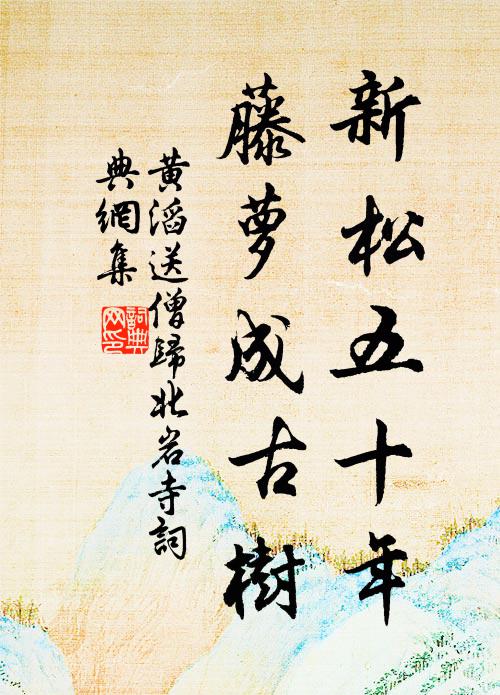 新松五十年
藤蘿成古樹
黃滔送僧歸北岩寺詞
典網集
詞典
网印